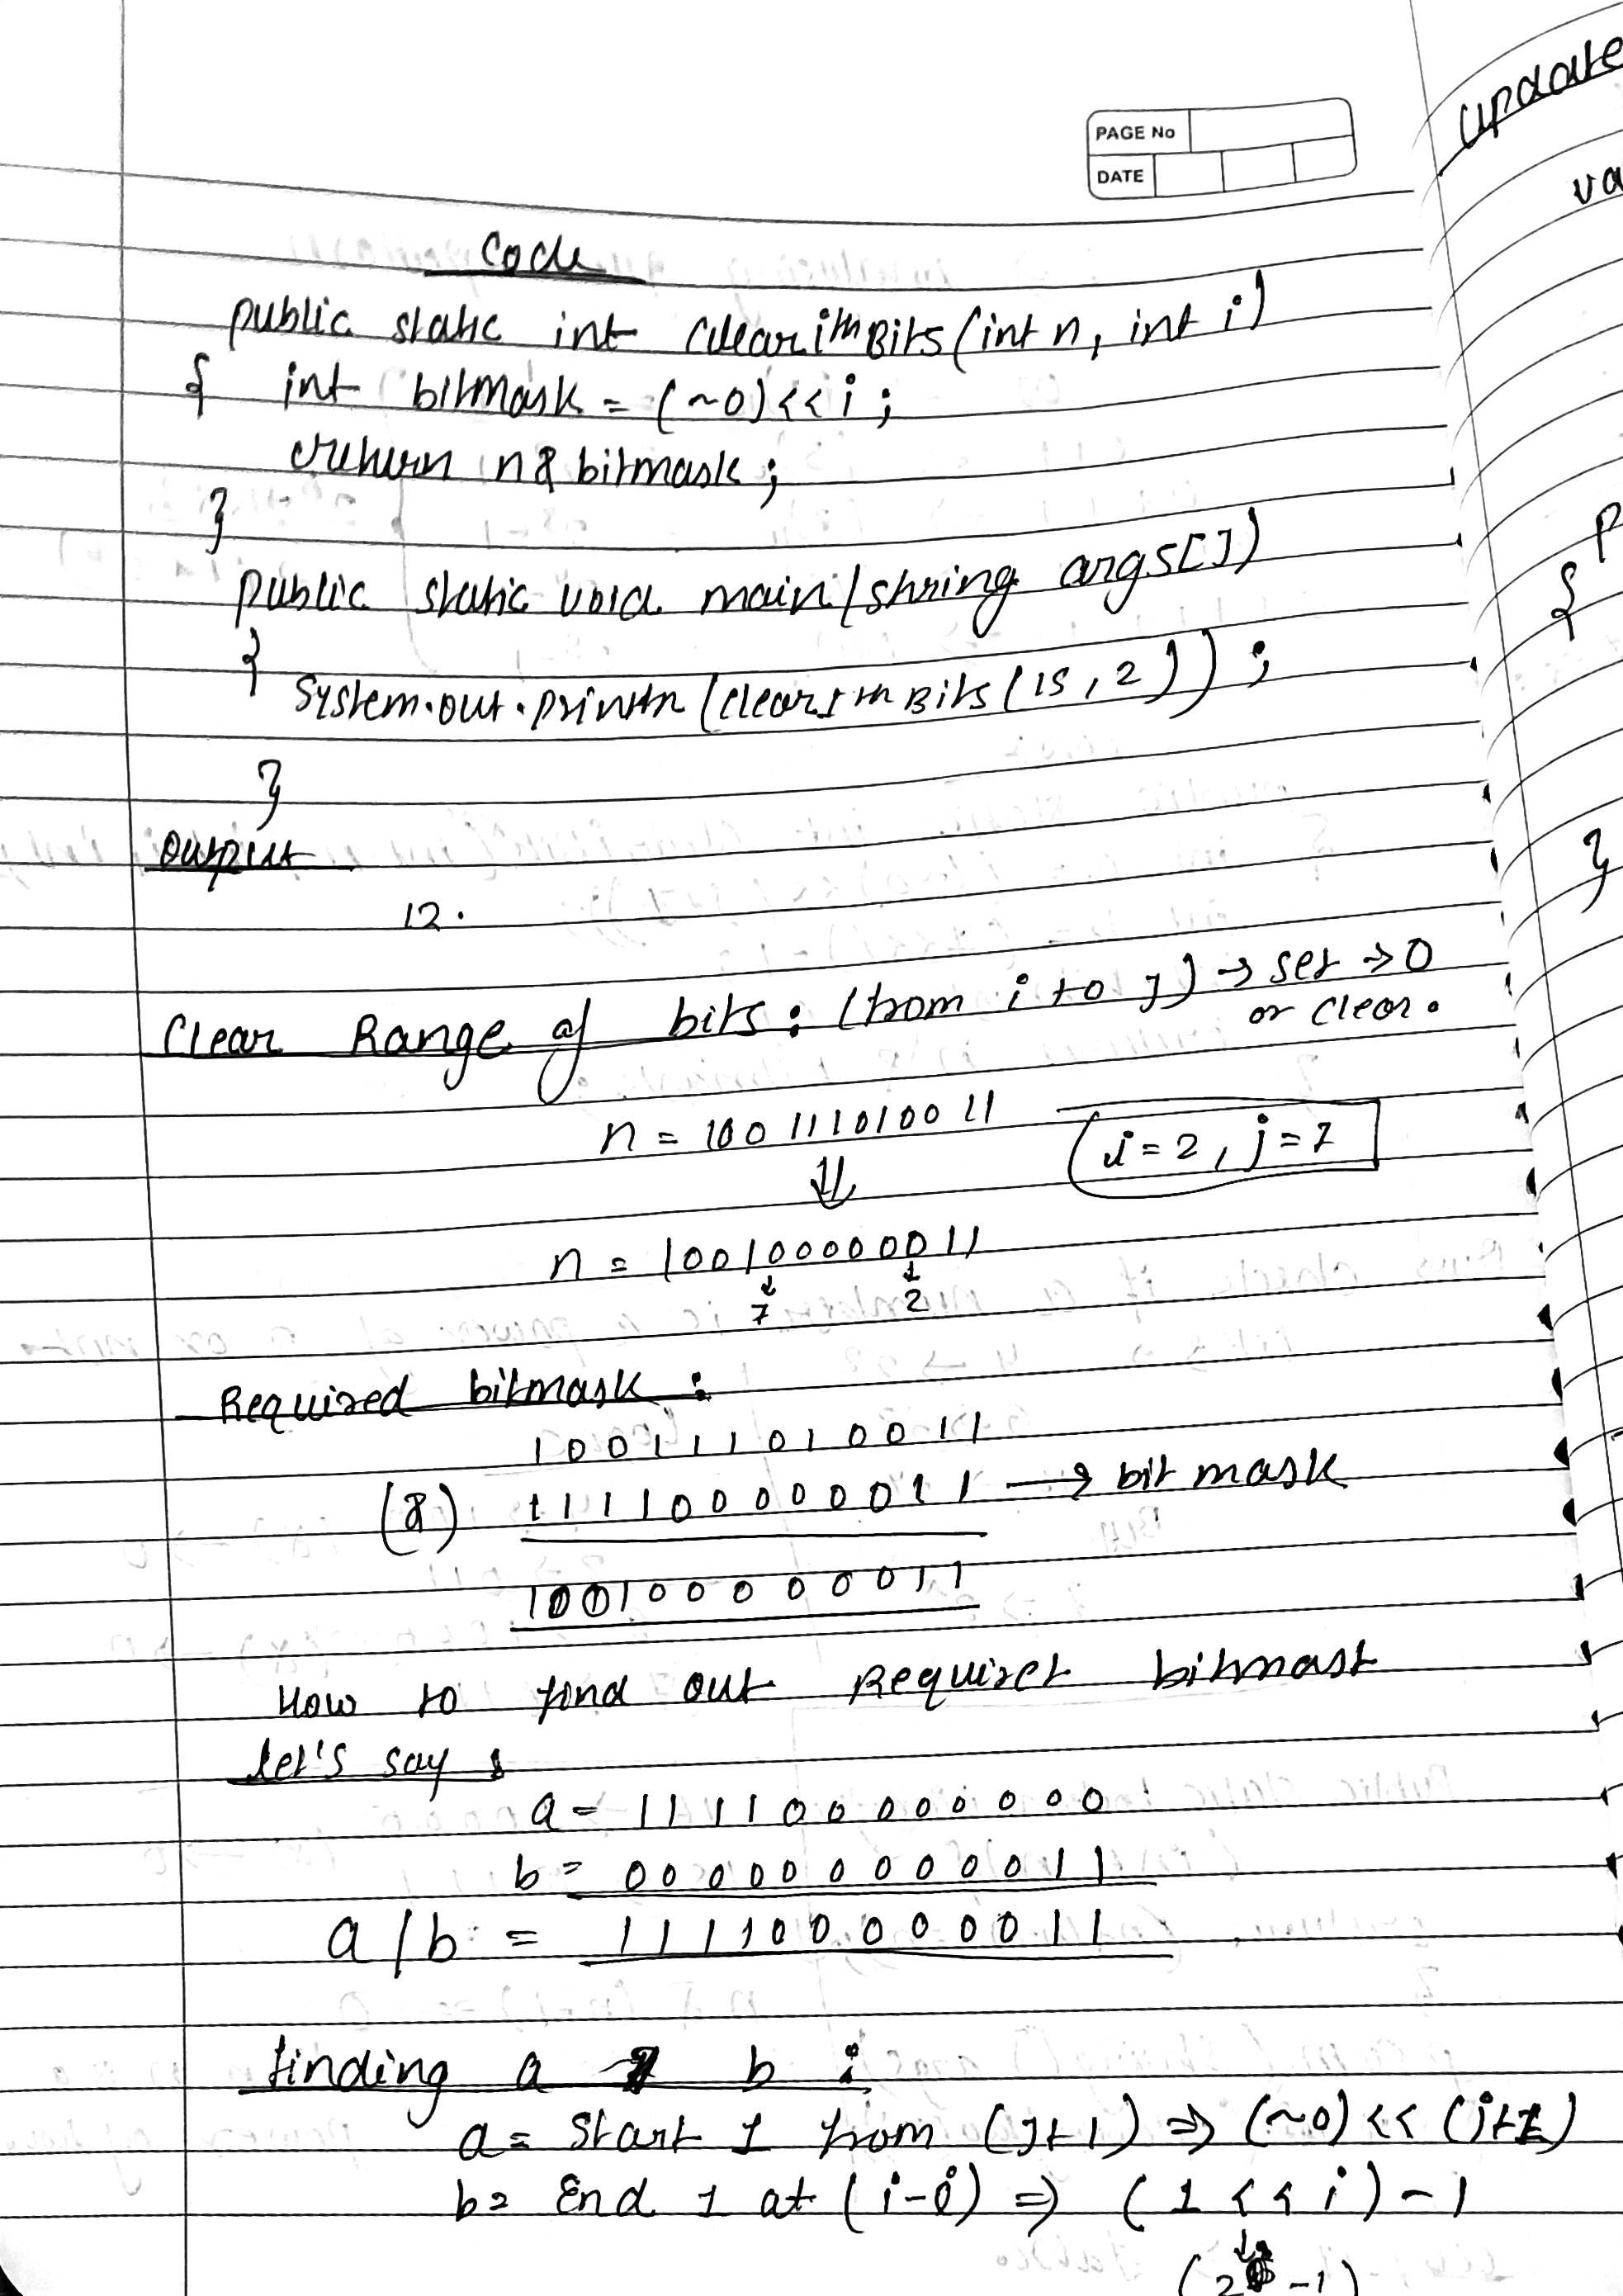 PAGE No
DATE
Code
public static int clearithBits(int n, int i)
{ int bitmask = (~0)<<i;
return n & bitmask;
}
public static void main(string args[])
{
System.out.println(clearIthBits(15,2));
}
Output
12.
Clear Range of bits: (from i to j) → set → 0
or clear.
n = 100111010011 (i=2, j=7
⇓
n = 100100000011
7 2
Required bitmask:
100111010011
(&) 111100000011 → bit mask
100100000011
How to find out Requiret bitmast
let's say:
a = 111100000000
b = 000000000011
a|b = 111100000011
finding a & b:
a = Start 1 from (j+1) ⇒ (~0)<<(j+1)
b = End 1 at (i-0) ⇒ (1<<i)-1
update
va
P
{
}